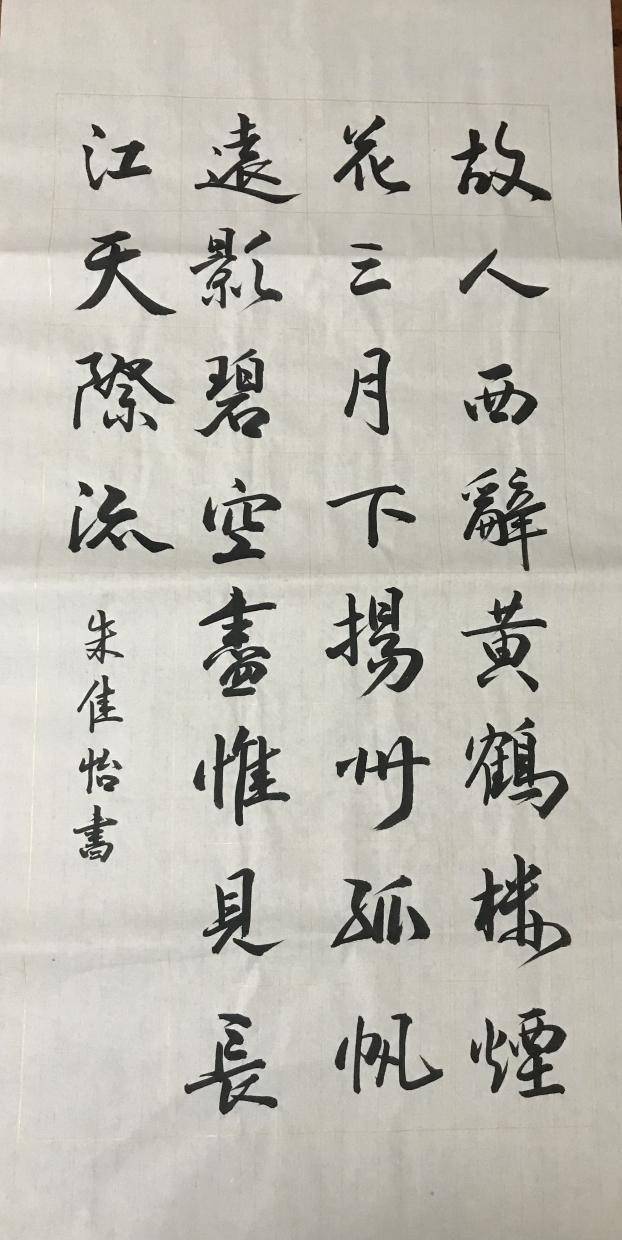 故人西辭黄鶴樓煙
花三月下揚州孤帆
遠影碧空盡惟見長
江天際流
朱佳怡書